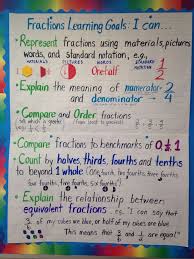 Fractions Learning Goals: I can...
• Represent fractions using materials, pictures,
words, and standard notation, e.g.,
MATERIALS PICTURES WORDS STANDARD NOTATION
One half 1/2
• Explain the meaning of numerator 2
and denominator 4
• Compare and Order fractions
• Compare fractions to benchmarks of 0 & 1
• Count by halves, thirds, fourths and tenths
to beyond 1 whole (One fourth, two fourths, three fourths,
four fourths, five fourths, six fourths!)
• Explain the relationship between
equivalent fractions e.g. "I can say that
3/6 of my cubes are blue, or half of my cubes are blue
This means that 3/6 and 1/2 are equal."